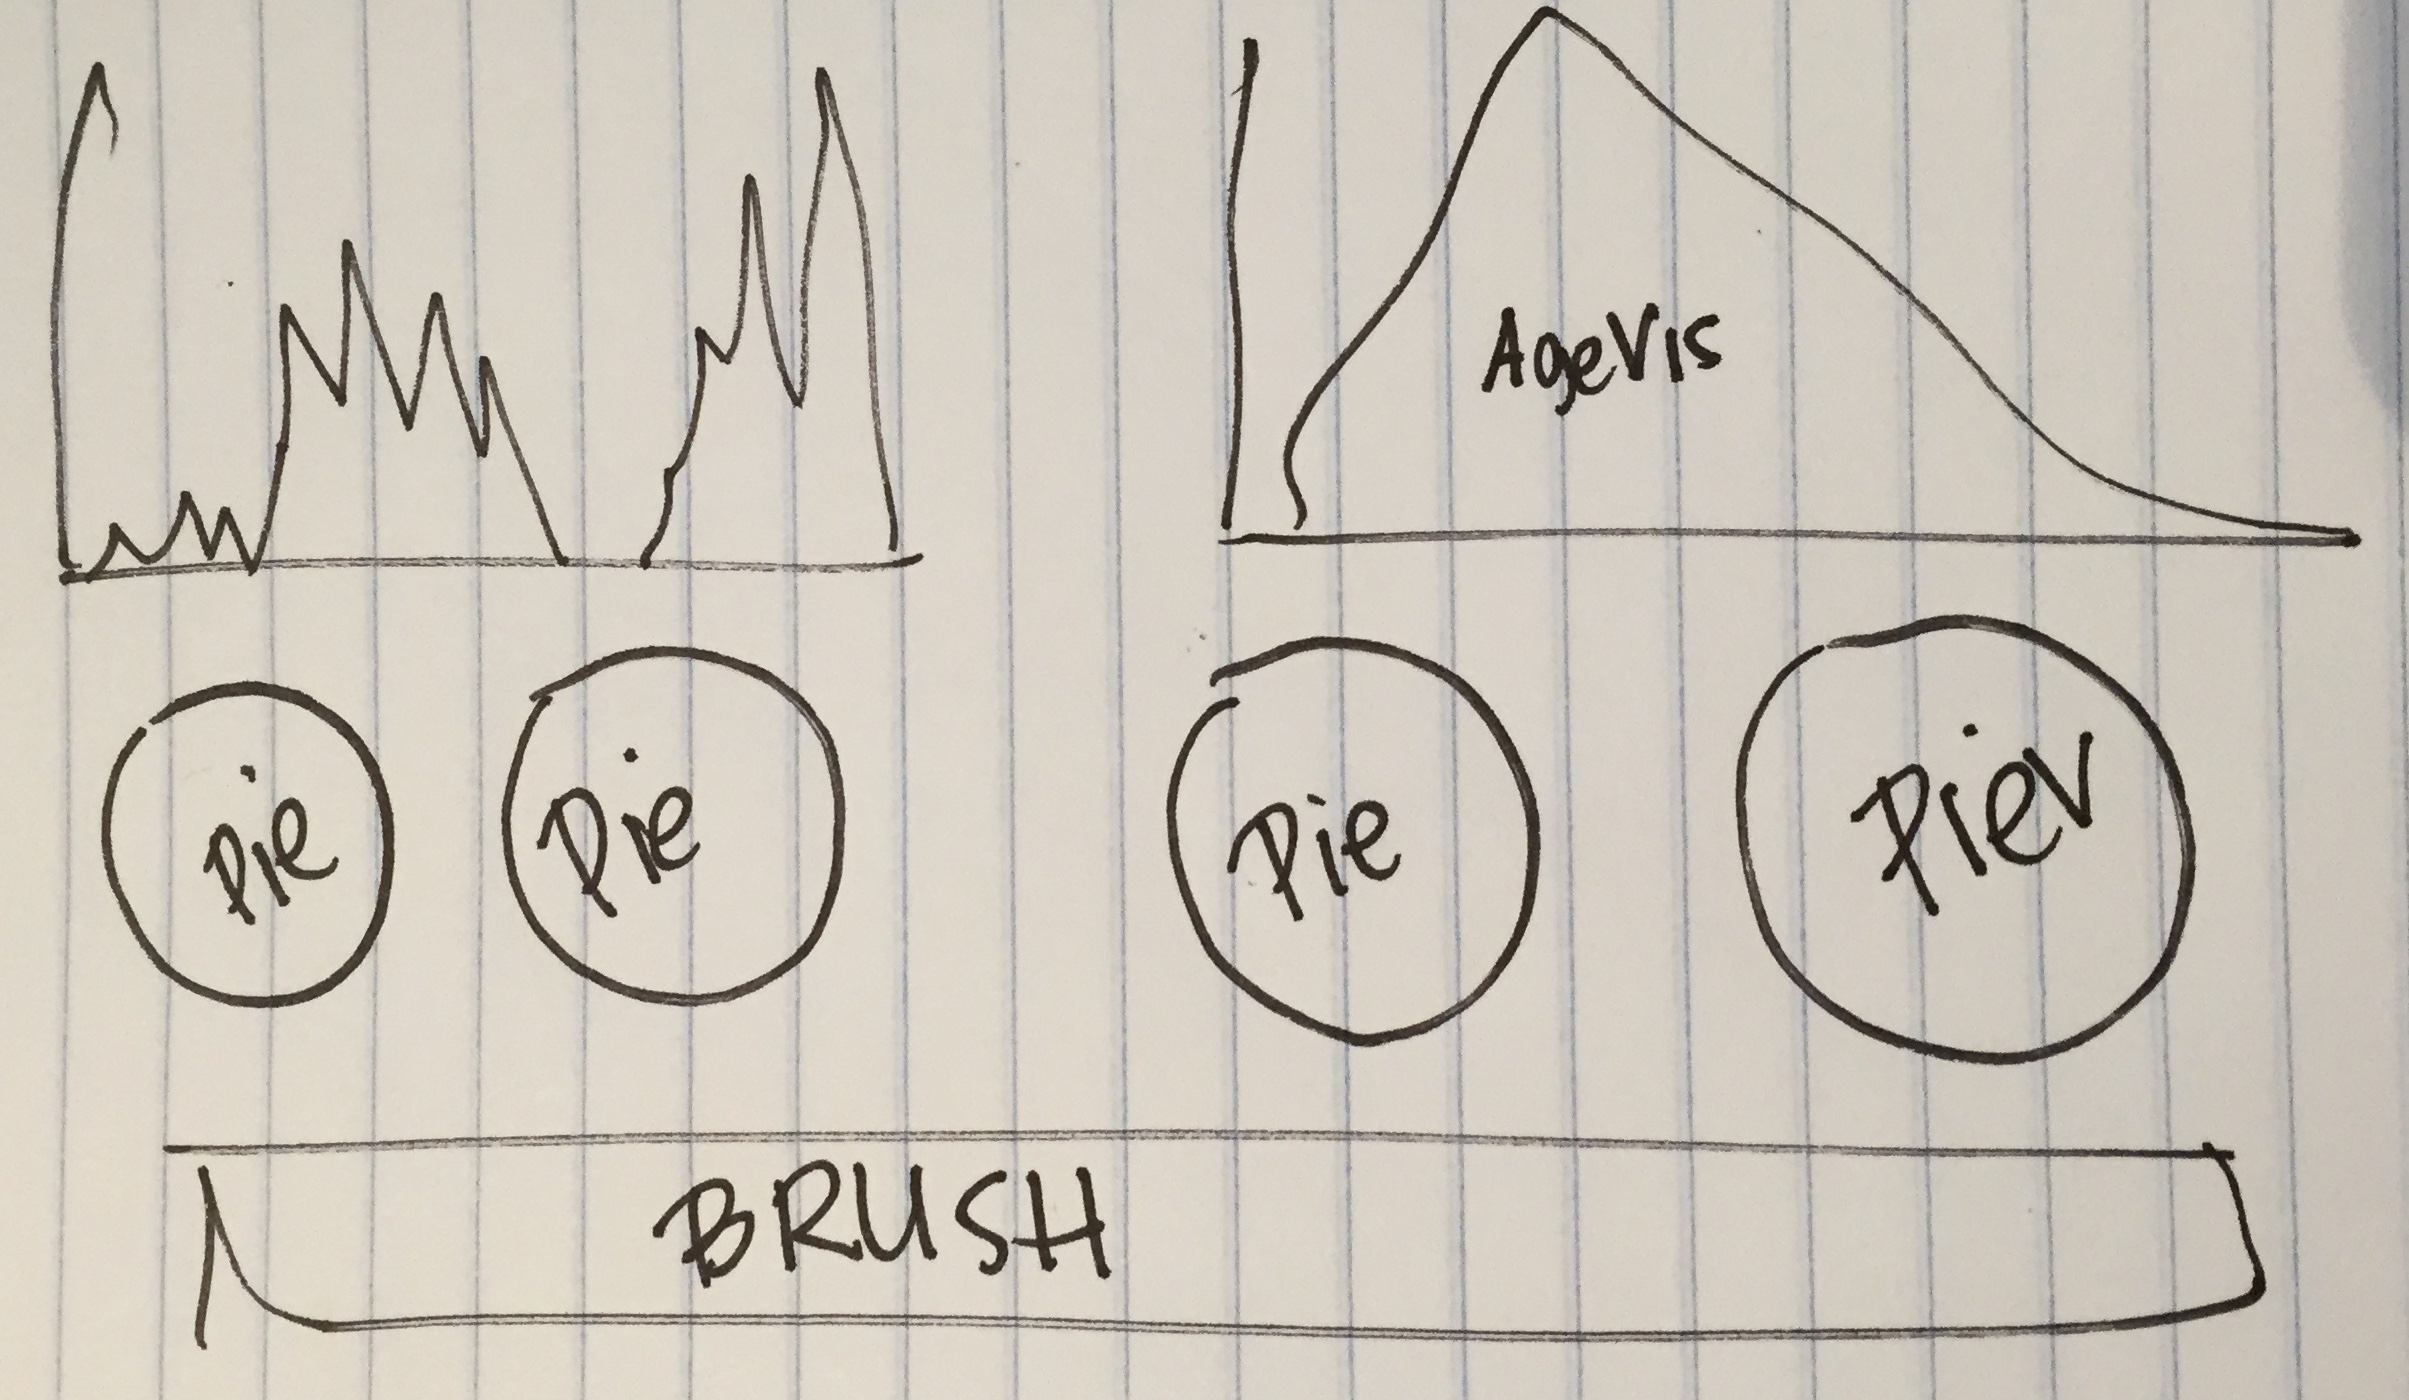 AgeVis
Pie
Pie
Pie
Piev
BRUSH